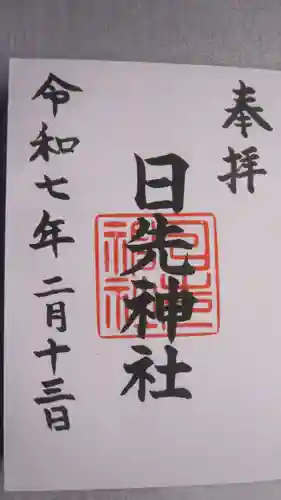 奉拝
日先神社
令和七年二月十三日